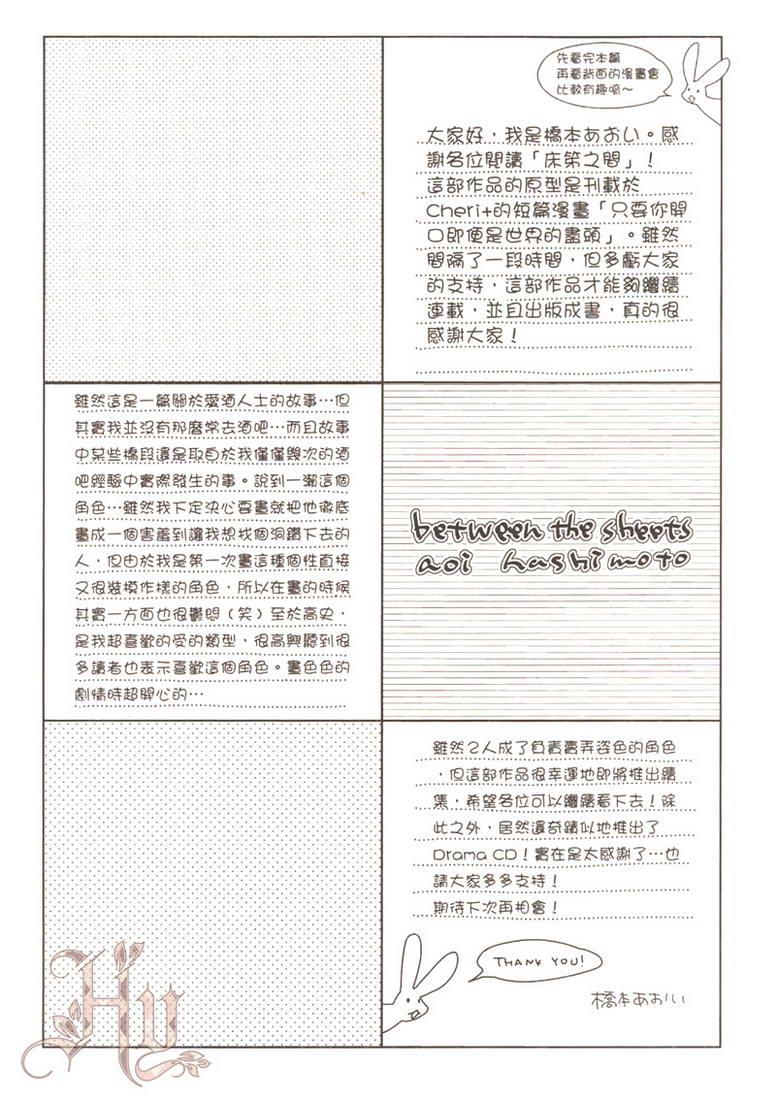 先看完本篇
再看背面的漫畫會
比較有趣喲～
大家好，我是橋本あおい。感
謝各位閱讀「床笫之間」！
這部作品的原型是刊載於
Cheri+的短篇漫畫「只要你開
口即便是世界的盡頭」。雖然
間隔了一段時間，但多虧大家
的支持，這部作品才能夠繼續
連載，並且出版成書，真的很
感謝大家！
雖然這是一篇關於愛酒人士的故事…但
其實我並沒有那麼常去酒吧…而且故事
中某些橋段還是取自於我僅僅幾次的酒
吧經驗中實際發生的事。說到一瀨這個
角色…雖然我下定決心要畫就把他徹底
畫成一個害羞到讓我想找個洞鑽下去的
人，但由於我是第一次畫這種個性直接
又很裝模作樣的角色，所以在畫的時候
其實一方面也很鬱悶（笑）至於高史，
是我超喜歡的受的類型，很高興聽到很
多讀者也表示喜歡這個角色。畫色色的
劇情時超開心的…
between the sheets
aoi hashimoto
雖然2人成了負責賣弄姿色的角色
，但這部作品很幸運地即將推出續
集，希望各位可以繼續看下去！除
此之外，居然還奇蹟似地推出了
Drama CD！實在是太感謝了…也
請大家多多支持！
期待下次再相會！
THANK YOU!
橋本あおい
Hy